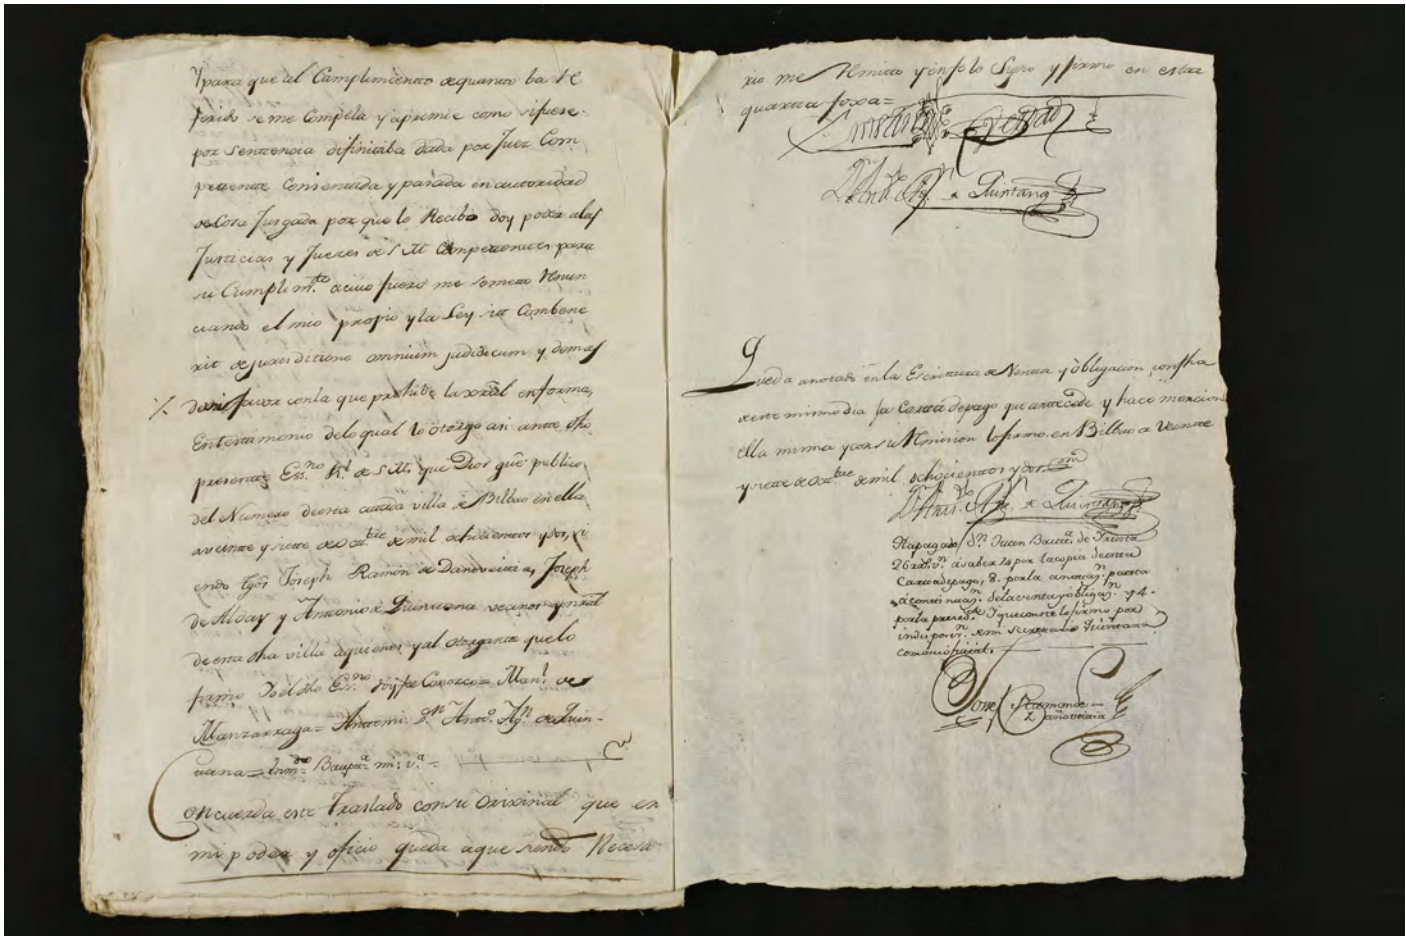 Y para que al Cumplimiento de quanto ba Re
ferido se me Compela y apremie como si fuese
por sentencia difinitiba dada por Juez Com
petente Consentida y pasada en autoridad
de Cosa Juzgada por que lo Recibo doy poder a las
Justicias y Juezes de S M Competentes para
su Cumplim.to a cuio fuero me someto Renun
ciando el mio propio y la Ley sit Combene
rit de jurisditione omnium judicum y demas
de mi favor con la que prohibe la xral en forma,
En testimonio de lo qual lo otorgo asi ante dho
presente Ess.no R.l de S M. que Dios gûe publico
del Numero de esta citada villa de Bilbao en ella
a veinte y siete de Oct.bre de mil ochocientos y dos, si
endo tgos Joseph Ramon de Danoveitia, Joseph
de Alday y Antonio de Quintana vecinos y nral
de esta dha villa a quienes y al otorgante que lo
firmo Yo el dho Ess.no doy fee Conozco = Man.l de
Manzarraga = Antemi: D.n Anto. Ag.n de Quin-
tana = Enm.do Baup.ta mi: v.a =
Concuerda este Traslado con su orixinal que en
mi poder y oficio queda a que siendo Necesa
rio me Remito y en fe lo Signo y firmo en esta
quarta foxa =
de Quintana
Queda anotado en la Escritura de Venta y obligacion confha
de este mismo dia la Carta de pago que antecede y hace mencion
ella misma y con su Remision lo firmo en Bilbao a Veinte
y siete de Oct.bre de mil ochocientos y dos
de Quintana
Ha pagado d.n Juan Baut.a de
26 rr.s v.n a saber 14 por la copia de esta
Carta de pago, 8. por la anotaz.n puesta
a continuaz.n de la venta y obligaz.n y 4.
por la Y que conste lo firmo por
indisposiz.n de mi Secretario Quintana
como su oficial.
Josef Ramon de
Dañoveitia